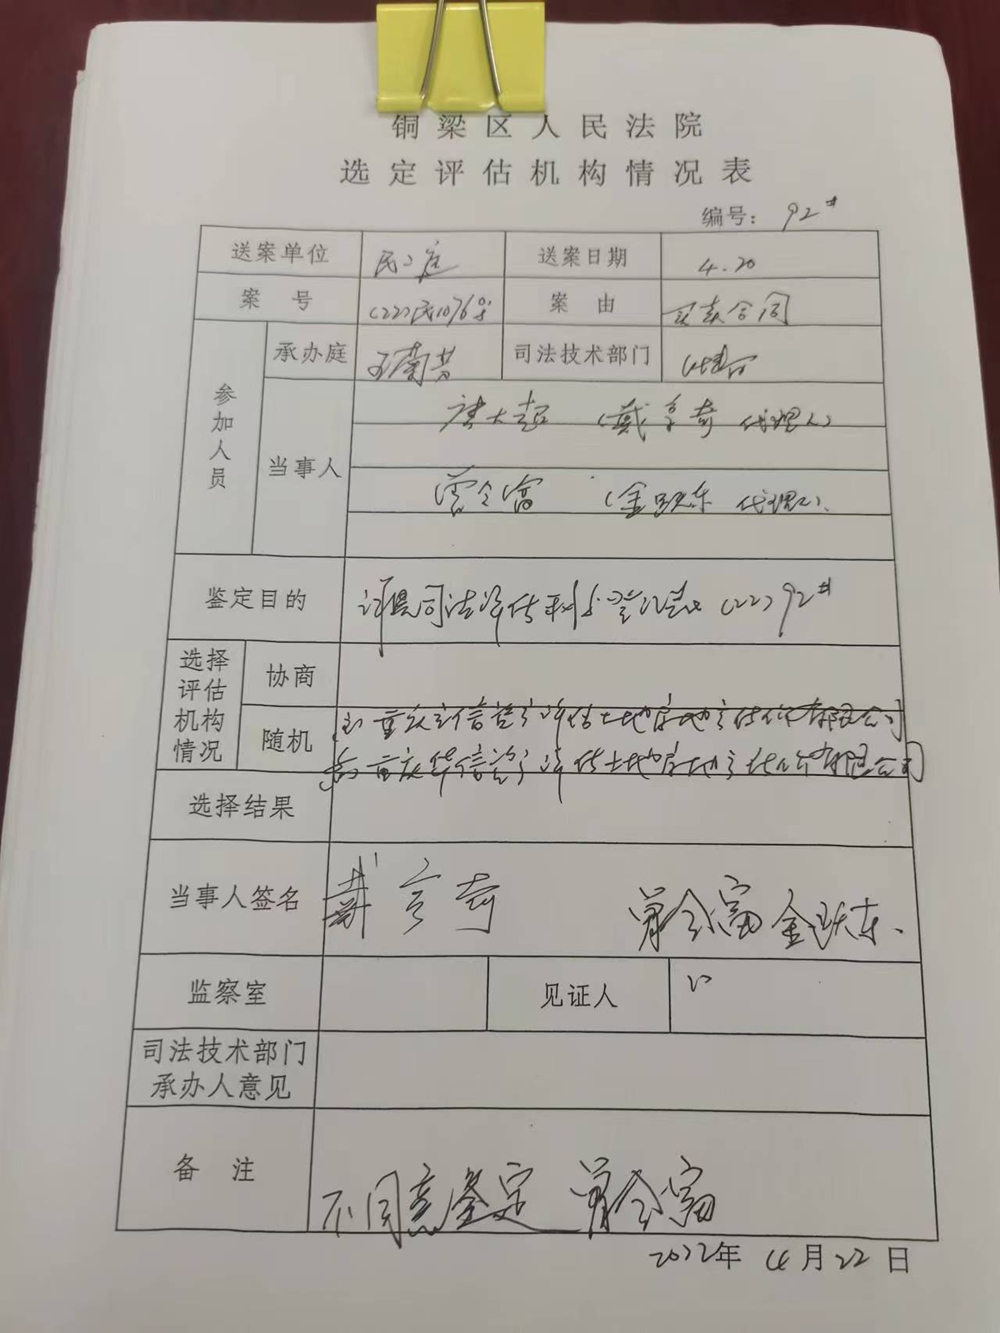 铜梁区人民法院
选定评估机构情况表
编号：92#
送案单位 民二庭 送案日期 4.20
案号 (22)民1076号 案由 买卖合同
参加人员 承办庭 司法技术部门
当事人 (戴享奇 代理人)
曾令富 (金跃东 代理人)
鉴定目的 详见司法评估 (22)92#
选择评估机构情况 协商
随机 重庆 信资产评估土地房地产估价有限公司
重庆华信资产评估土地房地产估价有限公司
选择结果
当事人签名 戴享奇 曾令富 金跃东
监察室 见证人
司法技术部门承办人意见
备注 不同意鉴定 曾令富
2022年4月22日